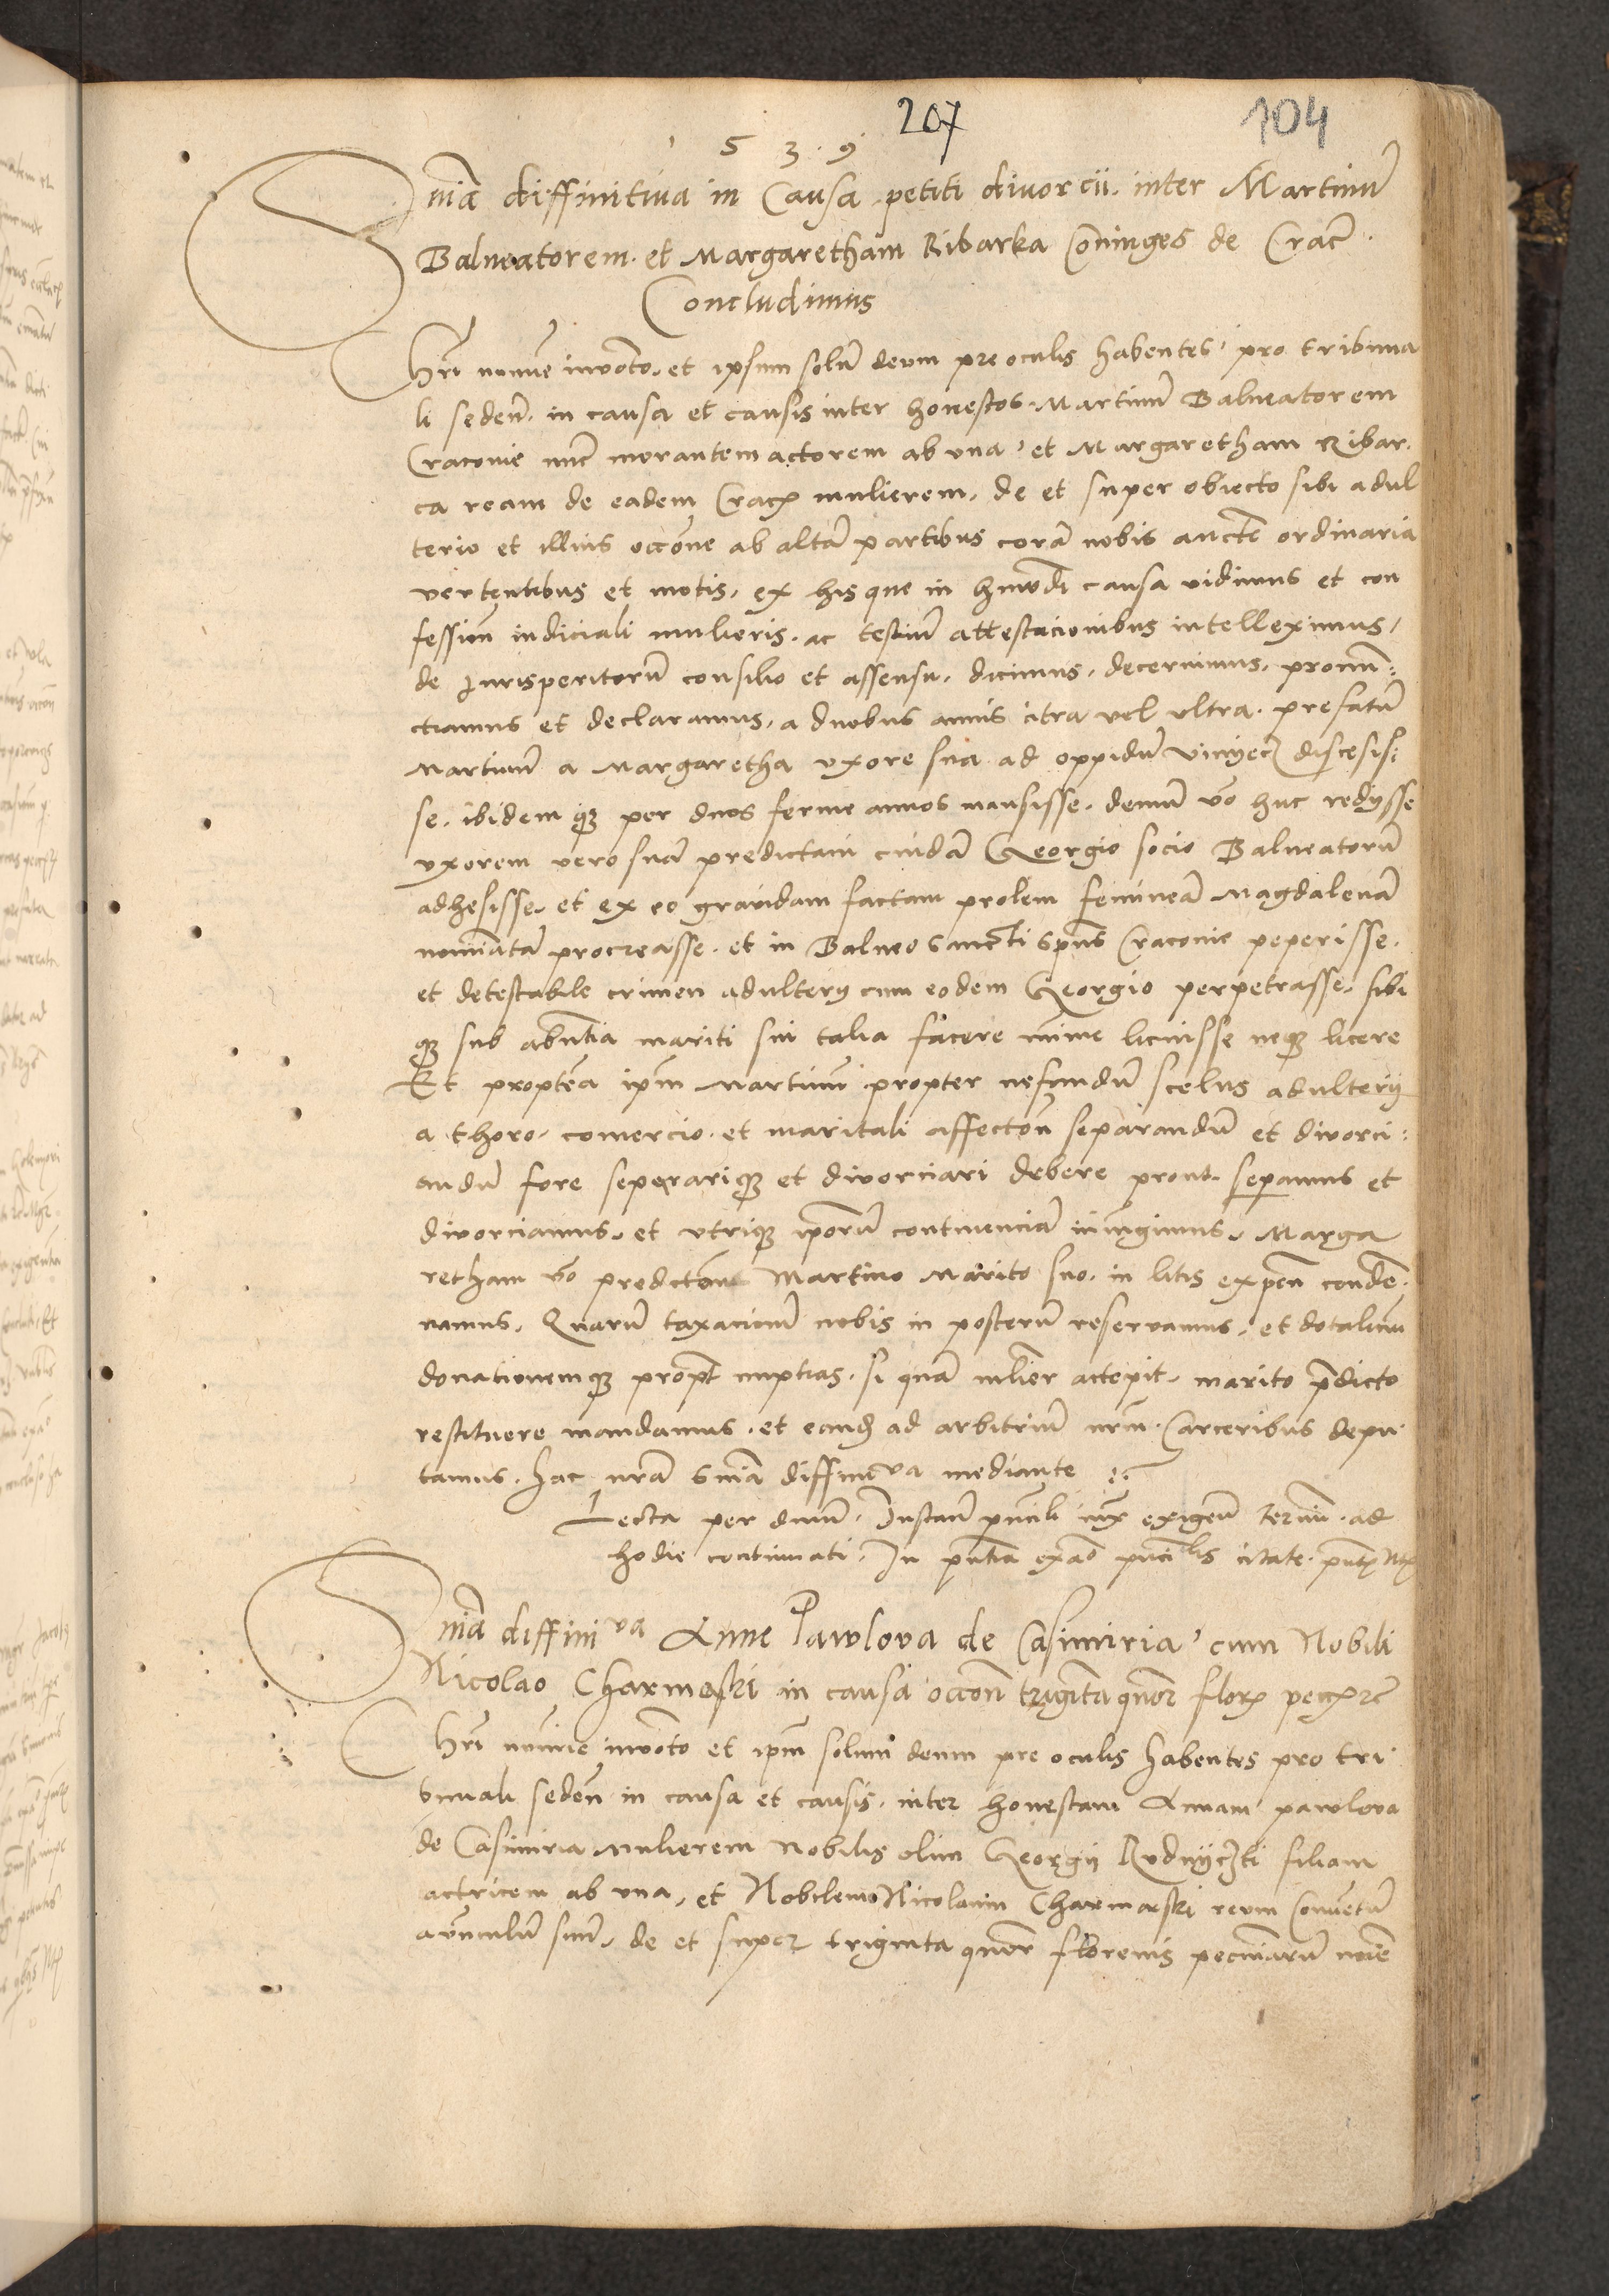 207
104
1 5 3 9
Snia diffinitiua in Causa petiti diuorcii inter Martinu
Balneatorem et Margaretham Ribarka Coniuges de Crac
Concludimus
Chri nomine inuocto et ipsum solu deum pre oculis habentes pro tribuna
li seden in causa et causis inter honestos Martinu Balneatorem
Cracouie nuc morantem actorem ab vna et Margaretham Ribar
ca ream de eadem Crac mulierem de et super obiecto sibi adul
terio et illius occone ab alta partibus cora nobis aucte ordinaria
vertentibus et motis, ex his que in hmodi causa vidimus et con
fession iudiciali mulieris ac testiu attestacionibus intelleximus,
de Jurisperitoru consilio et assensu, dicimus, decernimus, pronun:
ctiamus et declaramus, a duobus annis citra vel vltra prefatu
Martinu a Margaretha vxore sua ad oppidu discesis:
se, ibidem q per duos ferme annos mansisse, demu vo huc redijsse
vxorem vero sua predictam cuida Georgio socio Balneatoru
adhesisse, et ex eo grauidam factam prolem feminea Magdalena
nominata procreasse, et in Balneo Sancti Spus Cracouie peperisse,
et detestabile crimen adulterij cum eodem Georgio perpetrasse, sibi
q sub abntia mariti sui talia facere mime licuisse neq licere
Et proptea ipm Martinu propter nefandu scelus adulterij
a thoro, comercio et maritali affecton separandu et diuorci:
andu fore seperariq et diuorciari debere prout separamus et
diuorciamus, et vtriq ipsoru continencia iniungimus, Marga
retham vo predictam Martino Marito suo in litis expen conde
namus, Quaru taxacionu nobis in posteru reseruamus, et dotaliciu
donationemq propt nuptias, si qua mlier accepit, marito pdicto
restituere mandamus, et eand ad arbitriu nrm Carceribus depu
tamus, hac nra Snia diffinitua mediante
Lecta per dnum, Instan pncili iux exigen termi ad
hodie continuati, In pntia ex citate pntq Ntq
Snia diffiniua Anne Pawlowa de Casimiria cum Nobili
Nicolao Charmaski in causa occon triginta quor flor
Chri nomine inuocto et ipm solum deum pre oculis habentes pro tri
bunali seden in causa et causis inter honestam Annam pawlowa
de Casimiria mulierem Nobilis olim Georgij filiam
actricem ab vna, et Nobilem Nicolaum Charmaski reum Conuentu
auunculu suu, de et super triginta quor florenis pecuniaru noie